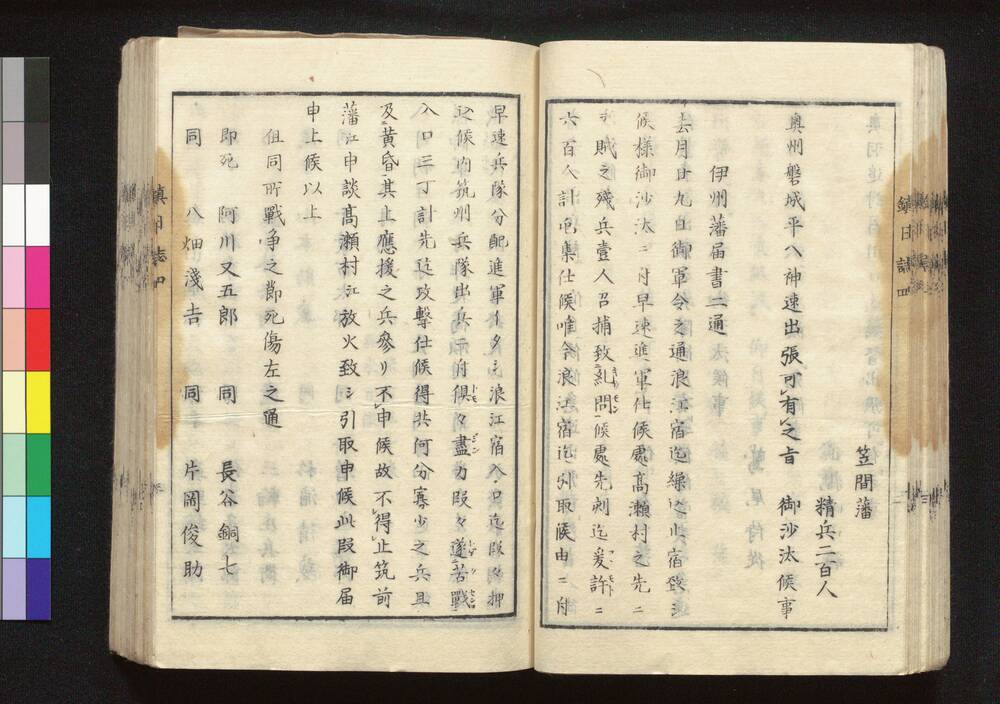 笠間藩
精兵二百人
奥州磐城平ヘ神速出張可有之旨　御沙汰候事
伊州藩届書二通
去月廿九日御軍令之通浪江宿迄繰込此宿致
候様御沙汰ニ付早速進軍仕候處高瀬村之先ニ
賊之残兵壹人召捕致糺問候處先刻迄爰許ニ
六百人計屯集仕候唯今浪江宿迄引取候由ニ付
早速兵隊分配進軍イタシ浪江宿入口迄段々押
候内筑州兵隊出兵ニ付倶々盡力段々遂苦戰
入口三丁計先迄攻撃仕候得共何分寡少之兵且
及黄昏其上應援之兵參リ不申候故不得止筑前
藩江申談高瀬村江放火致シ引取申候此段御届
申上候以上
但同所戰争之節死傷左之通
即死　阿川又五郎　同　長谷銅七
同　八畑淺吉　同　片岡俊助
鎮日誌四
鎮日誌四